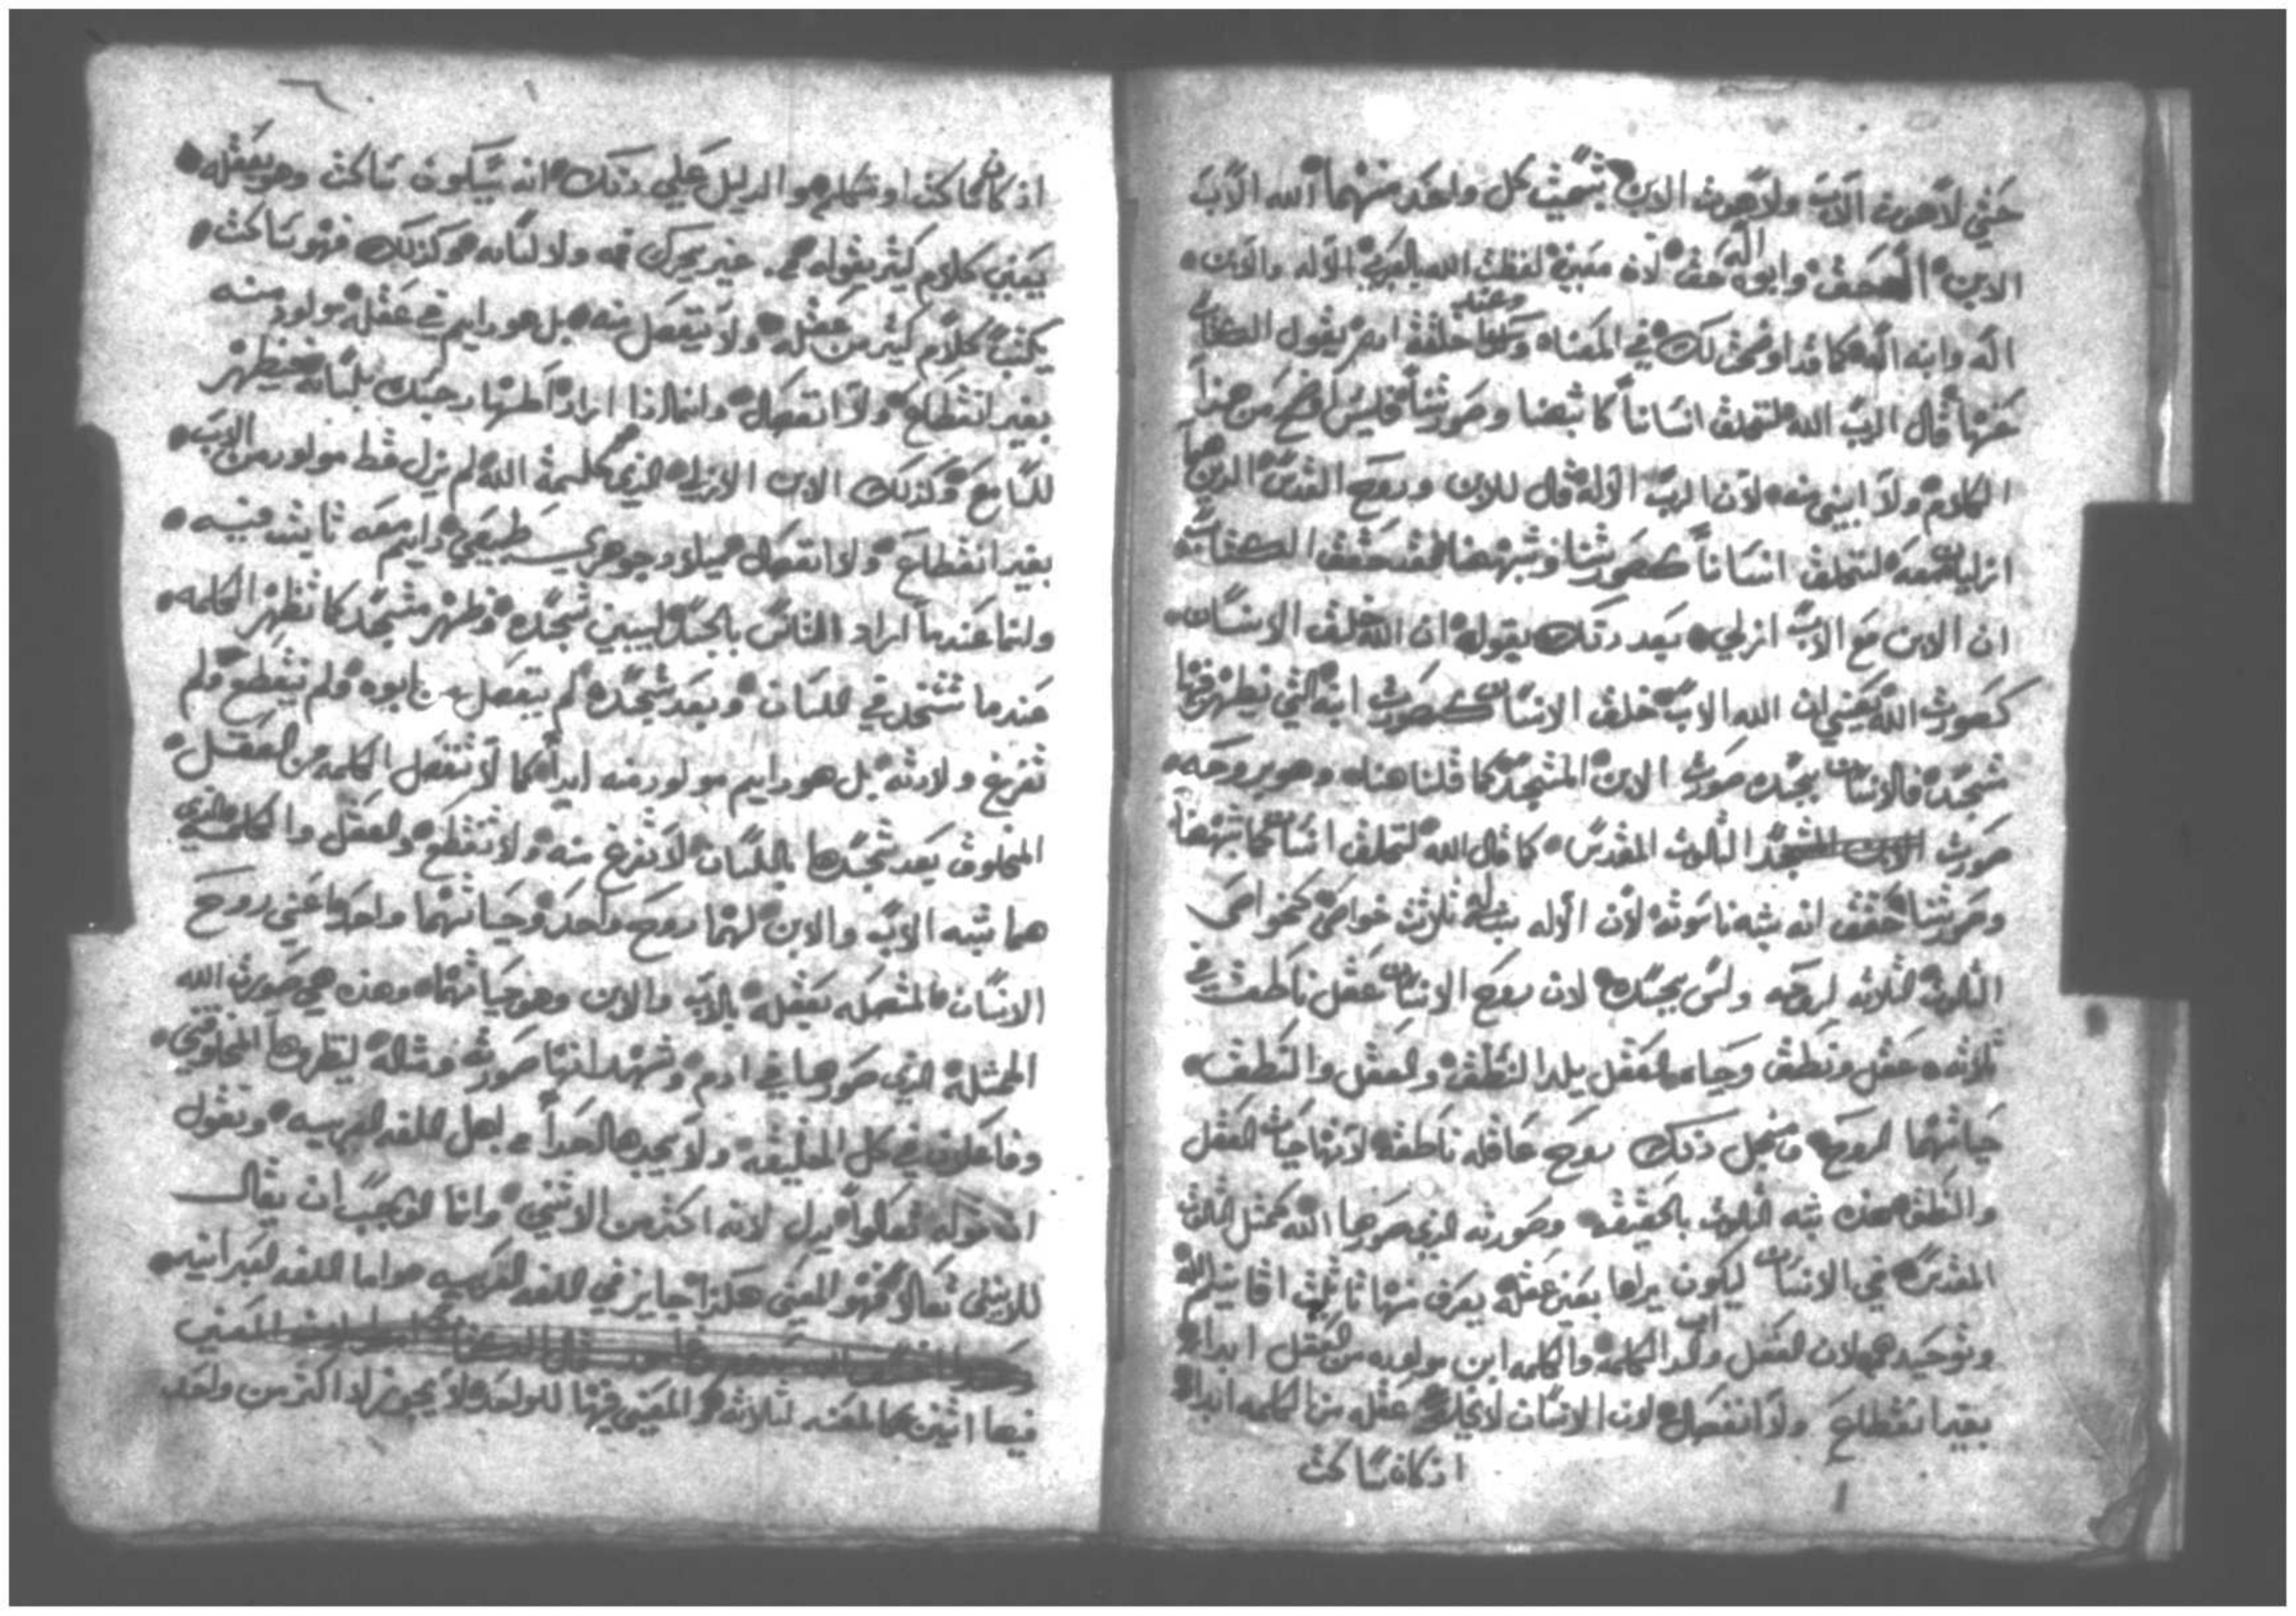 حتي لاهوت الاب ولاهوت الابن بتسميت كل واحد منهما الله الاب
الابن اله حق وابوه اله حق لان معني لفظت الله بالعربي الاله والابن
اله وابنه اله كما قد اوضحت لك في المعناه وعند خلقة ادم يقول الكتاب
عنها قال الرب الله لنخلق انسانا كاشبهنا وصورتنا فليس افصح من هذا
الكلام ولا ابين منه لان الرب الاله قال للابن وروح القدس الذين هما
ازليان معه لنخلق انسانا كصورتنا وشبهنا فقد حقق الكتاب
ان الابن مع الاب ازلي بعد ذلك بقوله ان الله خلق الانسان
كصورت الله يعني ان الله الاب خلق الانسان كصورت ابنه التي يظهر فيها
متجسد فالانسان بجسده صورت الابن المتجسد كما قلنا هناه وهو بروحه
صورت الثالوث المقدس كما قال الله لنخلق انسان كاشبهنا
وصورتنا حقق انه شبه ناسوته لان الاله ثلاث خواص كخواص
الثالوث الثلاثه لروحه وليس بجسده لان روح الانسان عقل ناطقت في
ثلاثه عقل ونطق وحياه العقل يلد النطق والعقل والنطق
حياتهما الروح فمن اجل ذلك روح عاقله ناطقه لانها حيات العقل
والنطق فهذه شبه الثالوث بالحقيقه وصورته الذي صورها الله كمثل الثالوث
المقدس في الانسان ليكون يراها بعين عقله يعرف منها تاثليث اقانيم الله
وتوحيدهم لان العقل والد الكلمه والكلمه ابن مولوده من العقل ابدا
بغير انقطاع ولا انفصال لان الانسان لا يخلو عقله من الكلمه ابدا
اذ كان ساكت
اذ كان ساكت او متكلم هو الدليل علي ذلك انه يكون ساكت وهو بعقله
يعني كلام كثير يقوله غير يحرك فمه ولا لسانه هو كذلك فهو ساكت
يكتب كلام كثير من عقله ولا ينفصل منه بل هو دايم في عقله مولود منه
بغير انقطاع ولا انفصال وانما اذا اراد اظهاره جسده بلسانه فيظهر
للسامع وكذلك الابن الازلي الذي كلمة الله لم يزل قط مولود من الاب
بغير انقطاع ولا انفصال ميلاد جوهري طبيعي دايم معه ثابت فيه
وانما عندما اراد الناس بالجسد ليبين تجسده وظهر متجسد كما تظهر الكلمه
عندما تتحد في اللسان وبعد تجسده لم ينفصل من ابوه ولم ينقطع ولم
تفرغ ولادته بل هو دايم مولود منه ابدا كما لا تنفصل الكلمه من العقل
المخلوق بعد تجسدها باللسان لا تفرغ منه ولا تنقطع والعقل والكلمه الذي
هما شبه الاب والابن لهما روح واحد وحياتهما واحده اعني روح
الانسان المتصله بعقله بالاب والابن وهو حياتهما وهذه هي صورت الله
المثلة الذي صورها في ادم وشهد انها صورته ومثاله لينظروها المخلوقين
وفاعلون في كل الخليقه ولا يجدها احدا اهل اللغه العربيه وتقول
ان قوله تعالوا يدل لانه اكثر من الاثنين وانما الواجب ان يقال
للاثنين تعالوا فهو المعني هكذا جايز في اللغه العربيه واما اللغه العبرانيه
المعني
فيها اثنين كالمعنه لثلاثه والمعني فيها للواحد لا يجوز الا اكثر من واحد